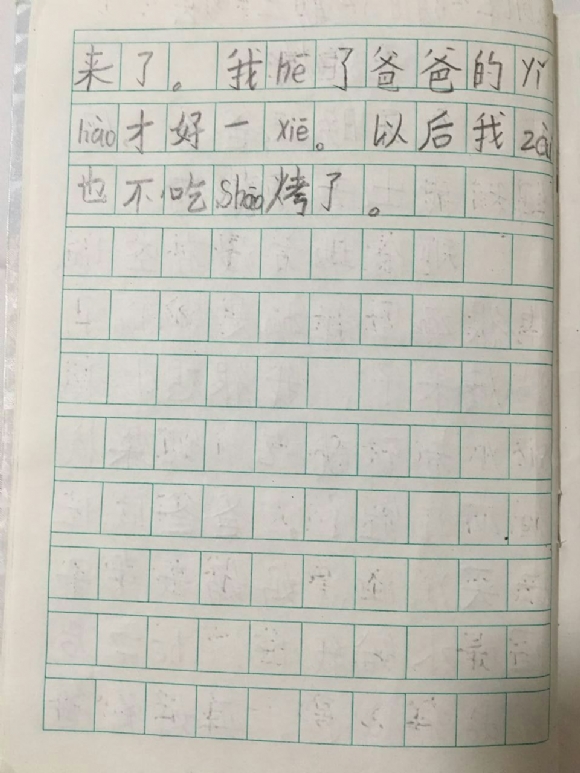 来了。我hē了爸爸的yǐ
liào才好一xiē。以后我zài
也不吃shāo烤了。